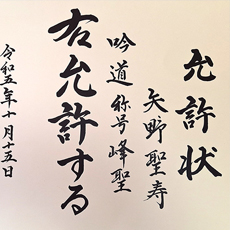 允許状
矢野聖寿
吟道称号峰聖
右允許する
令和五年十月十五日